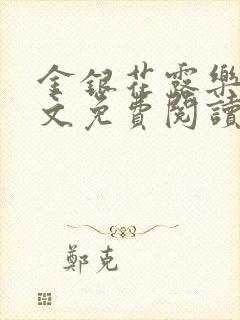 金銀花露樂
文免費閱讀
鄭克